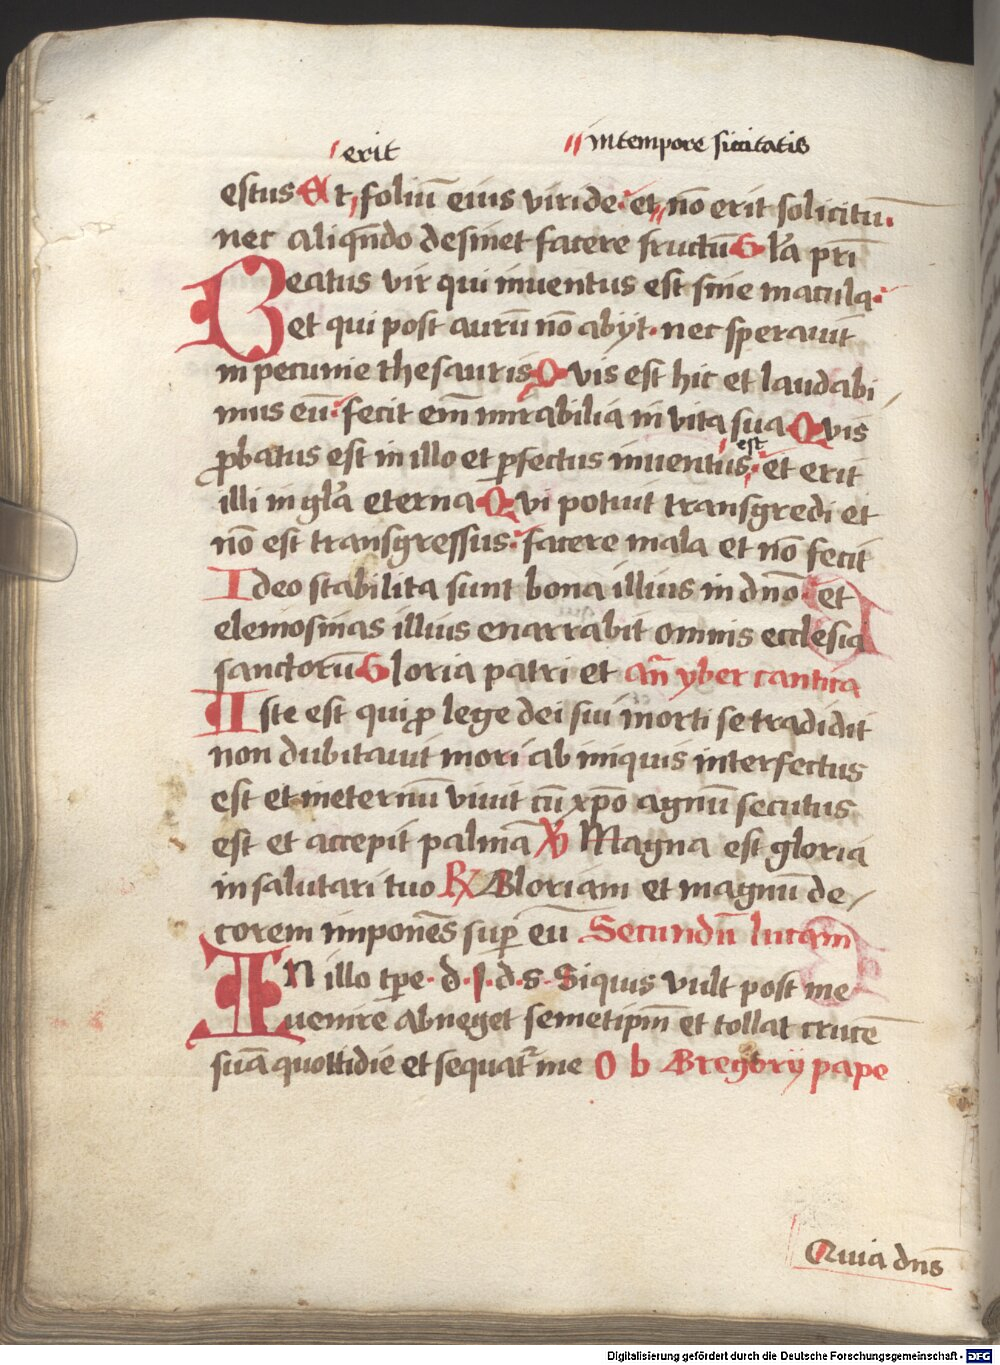 erit
in tempore siccitatis
estus Et foliū eius viride et nō erit solicitū
nec aliqn̄do desinet facere fructū Gl'a pr̄i
Beatus vir qui inuentus est sine macula
et qui post aurū nō abijt nec sperauit
in pecunie thesauris Quis est hic et laudabi
mus eū fecit em̄ mirabilia in vita sua Quis
est
ꝓbatus est in illo et ꝑfectus inuentus et erit
illi in gl'a eterna Qui potuit transgredi et
nō est transgressus facere mala et nō fecit
Ideo stabilita sunt bona illius in dn̄o et
elemosinas illius enarrabit omnis ecclesia
sanctorū Gloria patri et an̄ yber cantica
Iste est qui ꝓ lege dei sui morti se tradidit
non dubitauit mori ab iniquis interfectus
est et ineternū viuit cū xp̄o agnū secutus
est et accepit palmā ℣ Magna est gloria
in salutari tuo ℟ Gloriam et magnū de
corem impones sup̄ eū Secundū lucam
IN illo tp̄e d. J. d. s. Siquis vult post me
uenire abneget semetipm̄ et tollat crucē
suā quottidie et sequat' me O b Gregorij pape
Quia dn̄s
Digitalisierung gefördert durch die Deutsche Forschungsgemeinschaft - DFG